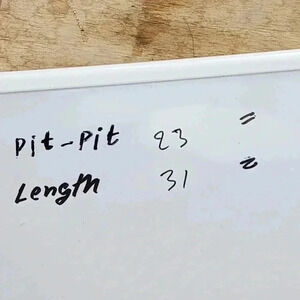 Pit-Pit 23 "
Length 31 "